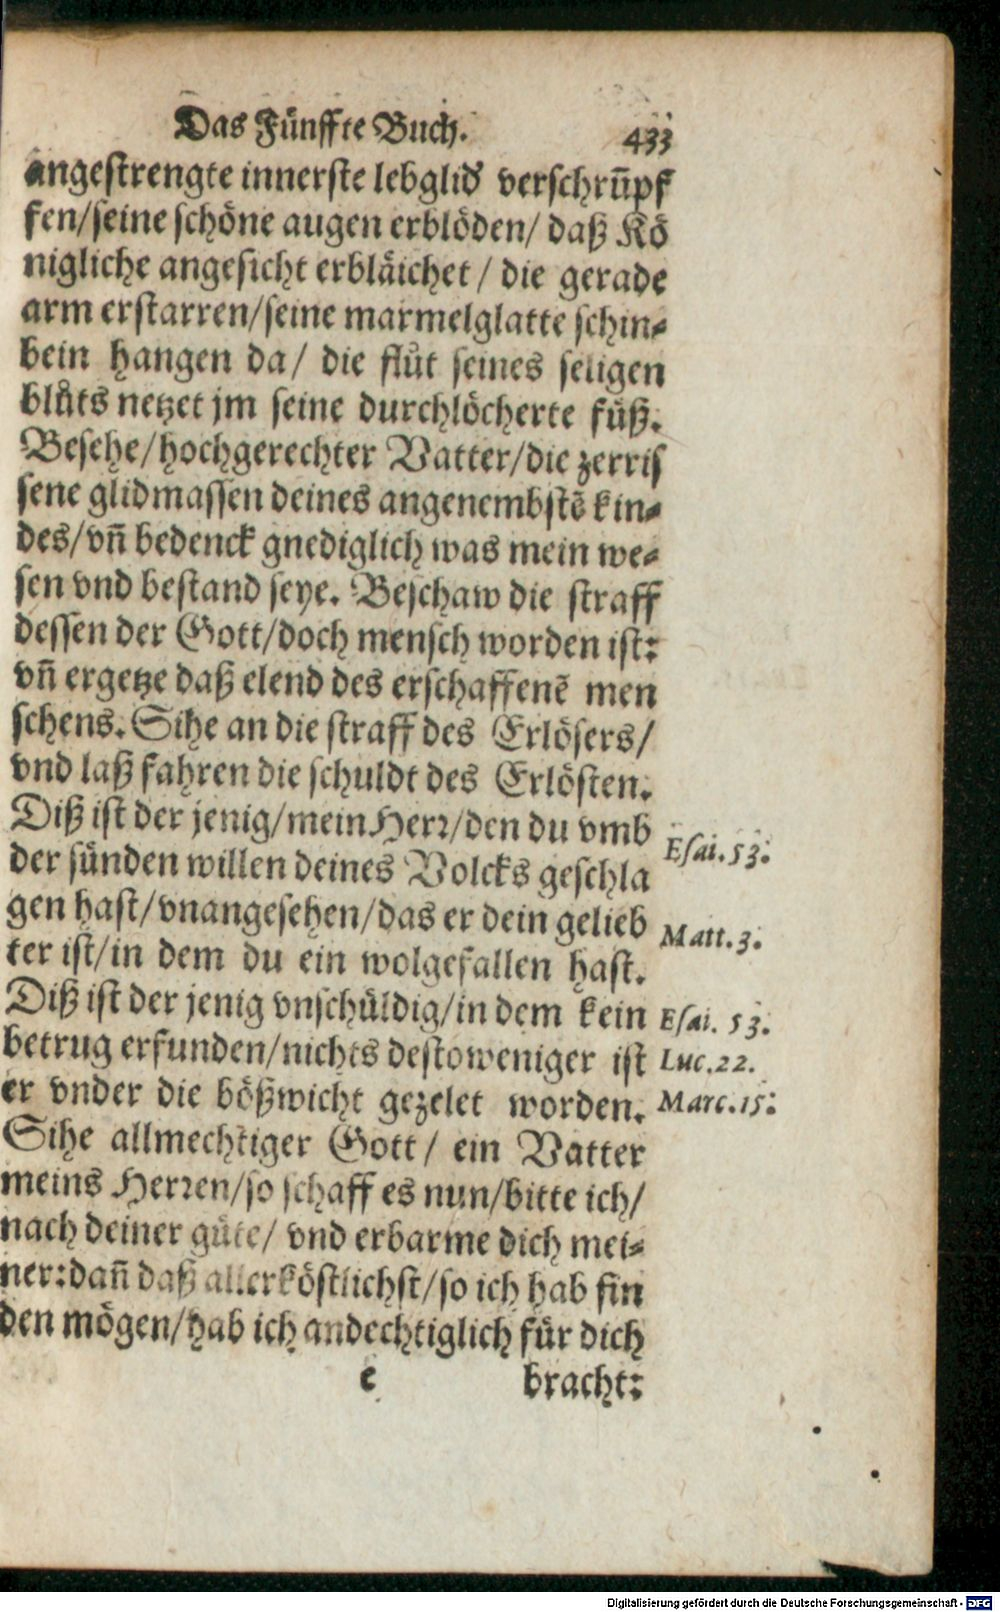 Das Fünffte Buch.
433
angestrengte innerste lebglid verschrũpf
fen/seine schöne augen erblöden/ daß Kö
nigliche angesicht erbläichet / die gerade
arm erstarren/seine marmelglatte schin-
bein hangen da/ die flůt seines seligen
blůts netzet jm seine durchlöcherte füß.
Besehe/hochgerechter Vatter/die zerris
sene glidmassen deines angenembstẽ kin-
des/vñ bedenck gnediglich was mein we-
sen vnd bestand seye. Beschaw die straff
dessen der Gott/doch mensch worden ist:
vñ ergetze daß elend des erschaffenẽ men
schens. Sihe an die straff des Erlösers/
vnd laß fahren die schuldt des Erlösten.
Diß ist der jenig/mein Herr/den du vmb
der sünden willen deines Volcks geschla
gen hast/vnangesehen/das er dein gelieb
ter ist/in dem du ein wolgefallen hast.
Diß ist der jenig vnschüldig/in dem kein
betrug erfunden/nichts destoweniger ist
er vnder die bößwicht gezelet worden.
Sihe allmechtiger Gott/ ein Vatter
meins Herren/so schaff es nun/bitte ich/
nach deiner güte/ vnd erbarme dich mei-
ner:dañ daß allerköstlichst/so ich hab fin
den mögen/hab ich andechtiglich für dich
e bracht:
Esai. 53.
Matt. 3.
Esai. 53.
Luc. 22.
Marc. 15.
Digitalisierung gefördert durch die Deutsche Forschungsgemeinschaft - DFG